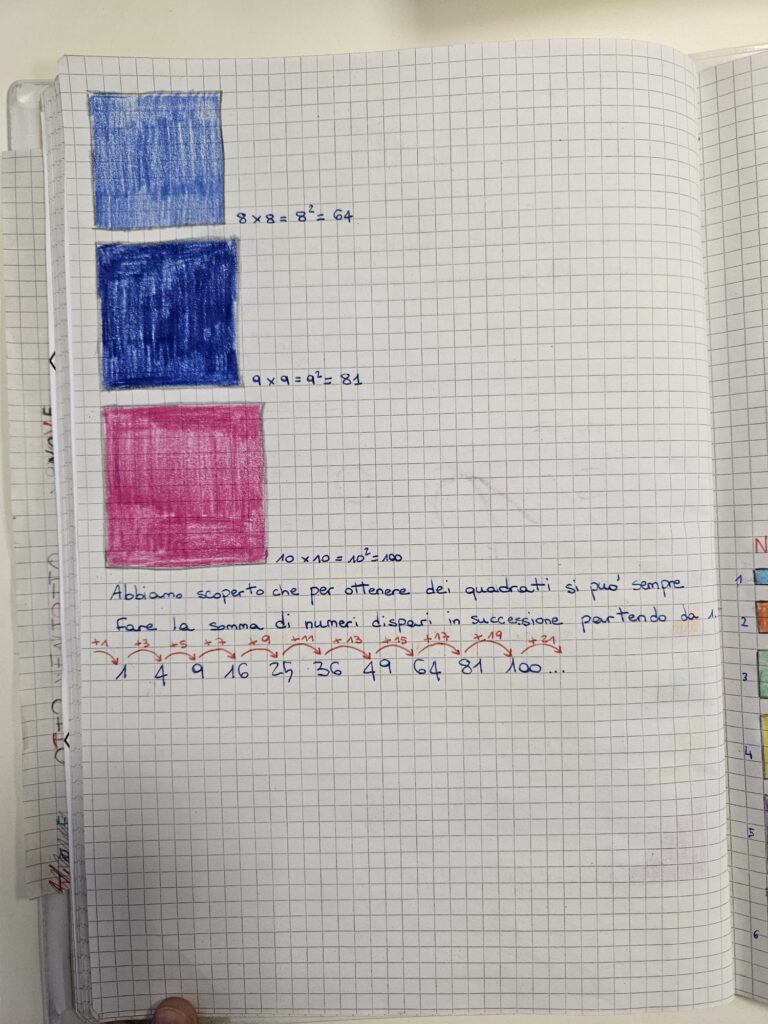 8 × 8 = 8² = 64
9 × 9 = 9² = 81
10 × 10 = 10² = 100
Abbiamo scoperto che per ottenere dei quadrati si puo' sempre
fare la somma di numeri dispari in successione partendo da 1.
+1 +3 +5 +7 +9 +11 +13 +15 +17 +19 +21
1 4 9 16 25 36 49 64 81 100...
N
1
2
3
4
5
6